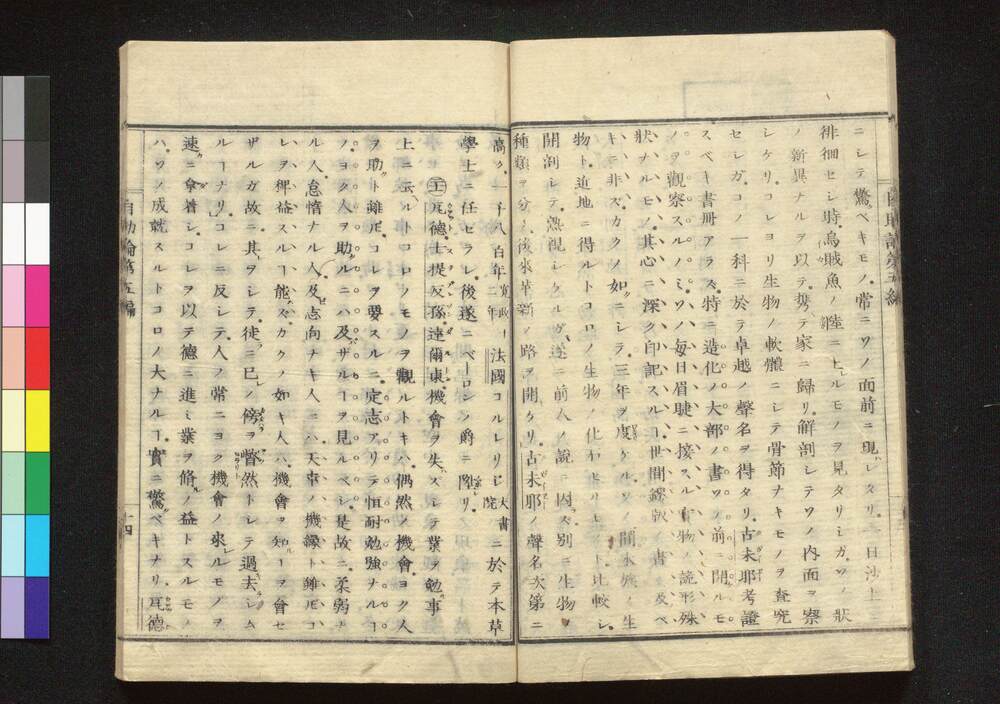 ニシテ驚ベキモノ常ニソノ面前ニ現レタリ一日沙上ニ
徘徊セシ時烏賊魚ノ陸ニ上ルモノヲ見タリシガソノ狀
ノ新異ナルヲ以テ携テ家ニ歸リ解剖シテソノ內面ヲ察
シケリコレヨリ生物ノ軟體ニシテ骨節ナキモノヲ查究
セシガコノ一科ニ於テ卓越ノ聲名ヲ得タリ古未耶考證
スベキ書冊アラズ特ニ造化ノ大部ノ書ソノ前ニ開ルモ
ノヲ觀察スルノミソハ每日眉睫ニ接スル實物ノ詭形殊
狀ナルモノ其心ニ深ク印記スルヿ世間鏤版ノ書ノ及ベ
キニ非ズカクノ如ニシテ三年ヲ度ケルソノ間水族ノ生
物ト近地ニ得ルトコロノ生物ノ化石トリヒト比較シ
開剖シテ熟視シケルガ遂ニ前人ノ說ニ因ズ別ニ生物ノ
種類ヲ分ノ後來革新ノ路ヲ開ケリ古未耶ノ聲名次第ニ
高ク一千八百年寬政十二年法國コルレリヒ大書院ニ於テ本草
學士ニ任セラレ後遂ニベーロンノ爵ニ陞リ
瓦德士提反孫達爾東機會ヲ失ズシテ業ヲ勉事
上ニ云ルトコロソモノヲ觀ルトキハ偶然ノ機會ヨク人
ヲ助ト雖𪜈コレヲ要スルニ定志アリテ恒耐勉強ナルヿ
ノヨク人ヲ助ルニハ及ザルヿヲ見ルベシ是故ニ柔弱ナ
ル人怠惰ナル人及ビ志向ナキ人ニハ天幸ノ機緣ト雖𪜈コ
レヲ裨益スルヿ能ズカクノ如キ人ハ機會ヲ知ルヿヲ會セ
ザルガ故ニ其ヲシテ徒ニ已レノ傍ヲ瞥然トシテ過去シム
ルヿナリコレニ反シテ人ノ常ニヨク機會ノ來ルモノヲ
速ニ拿着シコレヲ以テ德ニ進ミ業ヲ脩ノ益トスルモノ
ハソノ成就スルトコロノ大ナルヿ實ニ驚ベキナリ瓦德
自助論第五編
十四